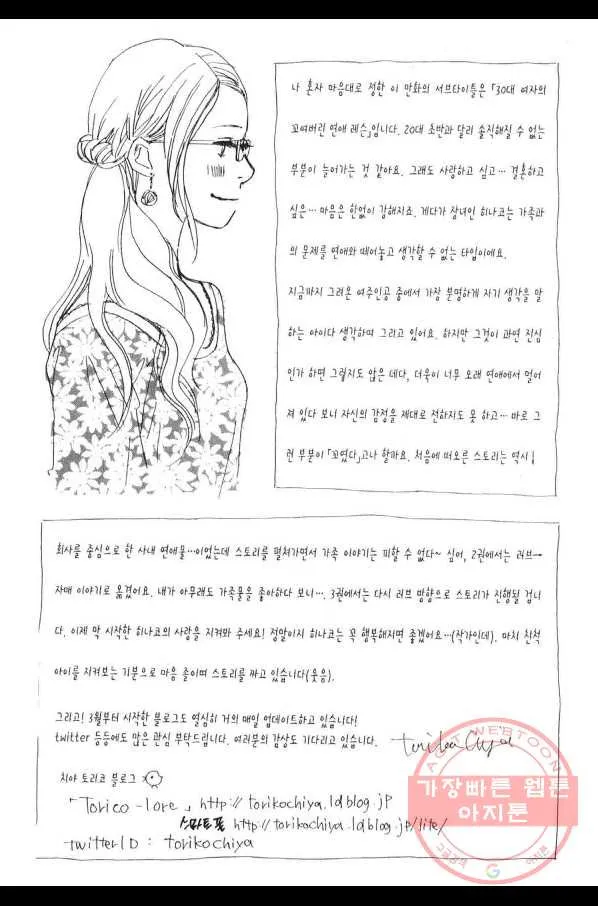 나 혼자 마음대로 정한 이 만화의 서브타이틀은 「30대 여자의
꼬여버린 연애 레슨」입니다. 20대 초반과 달리 솔직해질 수 없는
부분이 늘어가는 것 같아요. 그래도 사랑하고 싶고… 결혼하고
싶은… 마음은 한없이 강해지죠. 게다가 장녀인 히나코는 가족과
의 문제를 연애와 떼어놓고 생각할 수 없는 타입이에요.
지금까지 그려온 여주인공 중에서 가장 분명하게 자기 생각을 말
하는 아이다 생각하며 그리고 있어요. 하지만 그것이 과연 진심
인가 하면 그렇지도 않은 데다, 더욱이 너무 오래 연애에서 멀어
져 있다 보니 자신의 감정을 제대로 전하지도 못 하고… 바로 그
런 부분이 「꼬였다」고나 할까요. 처음에 떠오른 스토리는 역시!
회사를 중심으로 한 사내 연애물…이었는데 스토리를 펼쳐가면서 가족 이야기는 피할 수 없다~ 싶어, 2권에서는 러브→
자매 이야기로 옮겼어요. 내가 아무래도 가족물을 좋아하다 보니…. 3권에서는 다시 러브 방향으로 스토리가 진행될 겁니
다. 이제 막 시작한 히나코의 사랑을 지켜봐 주세요! 정말이지 히나코는 꼭 행복해지면 좋겠어요…(작가인데). 마치 친척
아이를 지켜보는 기분으로 마음 졸이며 스토리를 짜고 있습니다(웃음).
그리고! 3월부터 시작한 블로그도 열심히 거의 매일 업데이트하고 있습니다!
twitter 등등에도 많은 관심 부탁드립니다. 여러분의 감상도 기다리고 있습니다.
toriko Chiya
치야 토리코 블로그
「Torico-lore」 http://torikochiya.ldblog.jp
스마트폰 http://torikochiya.ldblog.jp/lite/
twitter ID : torikochiya
AGIT WEBTOON
가장빠른 웹툰
아지툰
구글검색 G 아지툰